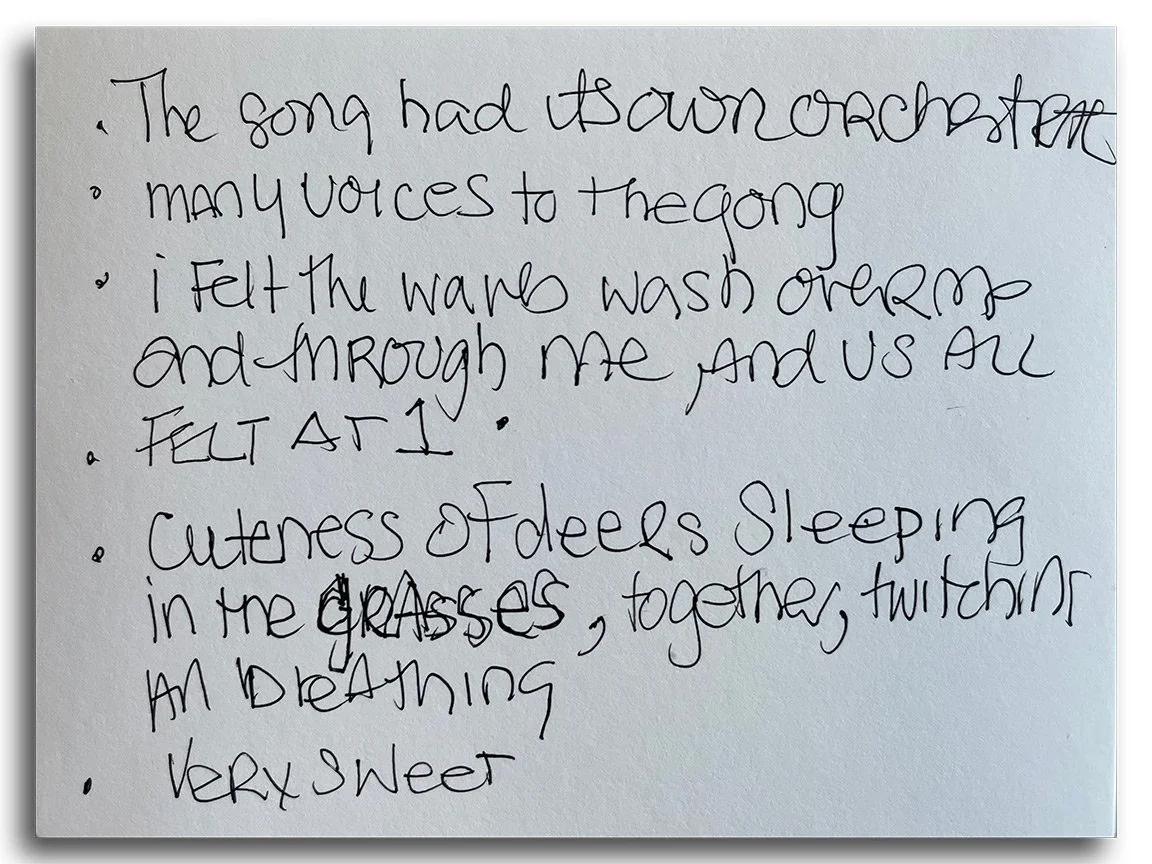 . The song had its own orchestra
. many voices to the gong
. i Felt the waves wash over me
and through me, And US ALL
. FELT AT 1 .
. Cuteness of deers Sleeping
in the grasses, together, twitching
An breathing
. Very sweet